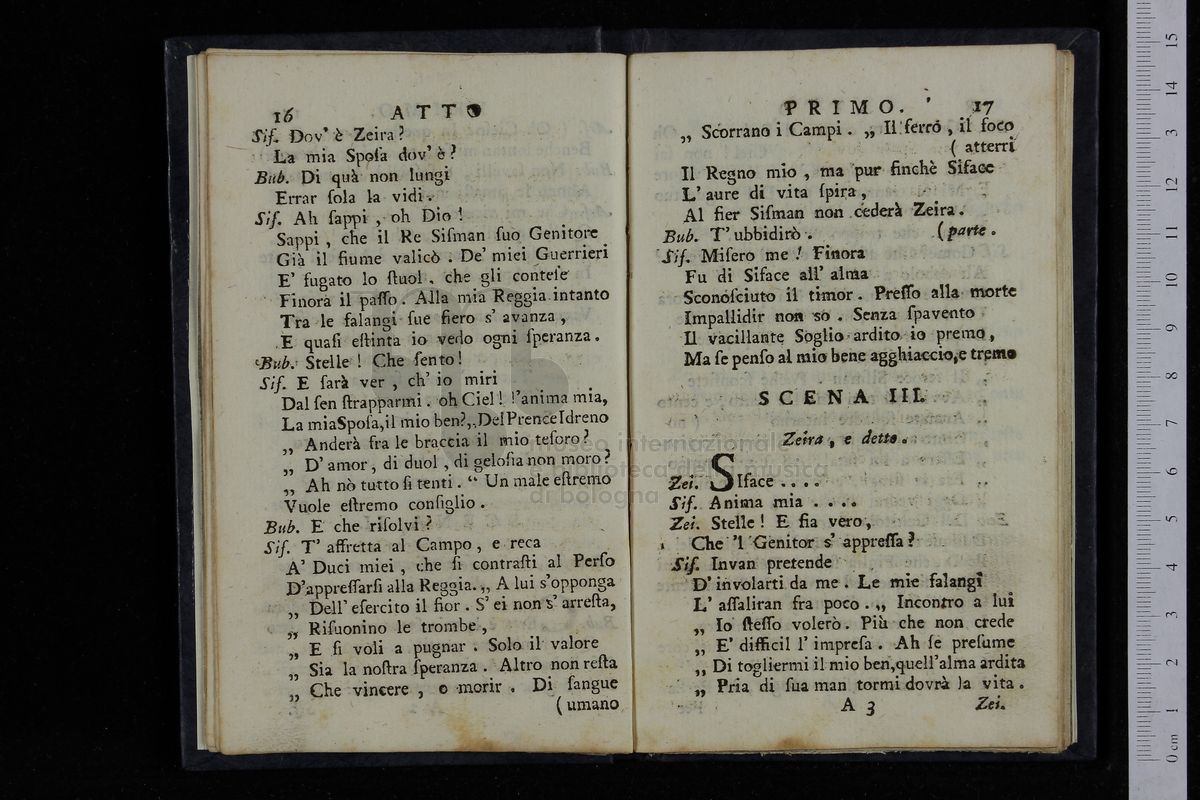 16 ATTO
Siſ. Dov' è Zeira?
La mia Spoſa dov' è?
Bub. Di quà non lungi
Errar ſola la vidi.
Siſ. Ah ſappi, oh Dio!
Sappi, che il Re Siſman ſuo Genitore
Già il fiume valicò. De' miei Guerrieri
E' fugato lo ſtuol, che gli conteſe
Finora il paſſo. Alla mia Reggia intanto
Tra le falangi ſue fiero s' avanza,
E quaſi eſtinta io vedo ogni ſperanza.
Bub. Stelle! Che ſento!
Siſ. E ſarà ver, ch' io miri
Dal ſen ſtrapparmi. oh Ciel! l'anima mia,
La mia Spoſa, il mio ben? „ Del Prence Idreno
„ Anderà fra le braccia il mio teſoro?
„ D' amor, di duol, di geloſia non moro?
„ Ah nò tutto ſi tenti. “ Un male eſtremo
Vuole eſtremo conſiglio.
Bub. E che riſolvi?
Siſ. T' affretta al Campo, e reca
A' Duci miei, che ſi contraſti al Perſo
D'appreſſarſi alla Reggia. „ A lui s'opponga
„ Dell' eſercito il fior. S' ei non s' arreſta,
„ Riſuonino le trombe,
„ E ſi voli a pugnar. Solo il valore
„ Sia la noſtra ſperanza. Altro non reſta
„ Che vincere, o morir. Di ſangue
( umano
PRIMO. 17
„ Scorrano i Campi. „ Il ferro, il foco
( atterri
Il Regno mio, ma pur finchè Siface
L' aure di vita ſpira,
Al fier Siſman non cederà Zeira.
Bub. T' ubbidirò. (parte.
Siſ. Miſero me! Finora
Fu di Siface all' alma
Sconoſciuto il timor. Preſſo alla morte
Impallidir non so. Senza ſpavento
Il vacillante Soglio ardito io premo,
Ma ſe penſo al mio bene agghiaccio, e tremo
SCENA III.
Zeira, e detto.
Zei. SIface ....
Siſ. Anima mia ....
Zei. Stelle! E fia vero,
Che 'l Genitor s' appreſſa?
Siſ. Invan pretende
D' involarti da me. Le mie falangi
L' aſſaliran fra poco. „ Incontro a lui
„ Io ſteſſo volerò. Più che non crede
„ E' difficil l' impreſa. Ah ſe preſume
„ Di togliermi il mio ben, quell' alma ardita
„ Pria di ſua man tormi dovrà la vita.
A 3 Zei.
museo internazionale
e biblioteca della musica
di bologna
0 cm 1 2 3 4 5 6 7 8 9 10 11 12 13 14 15